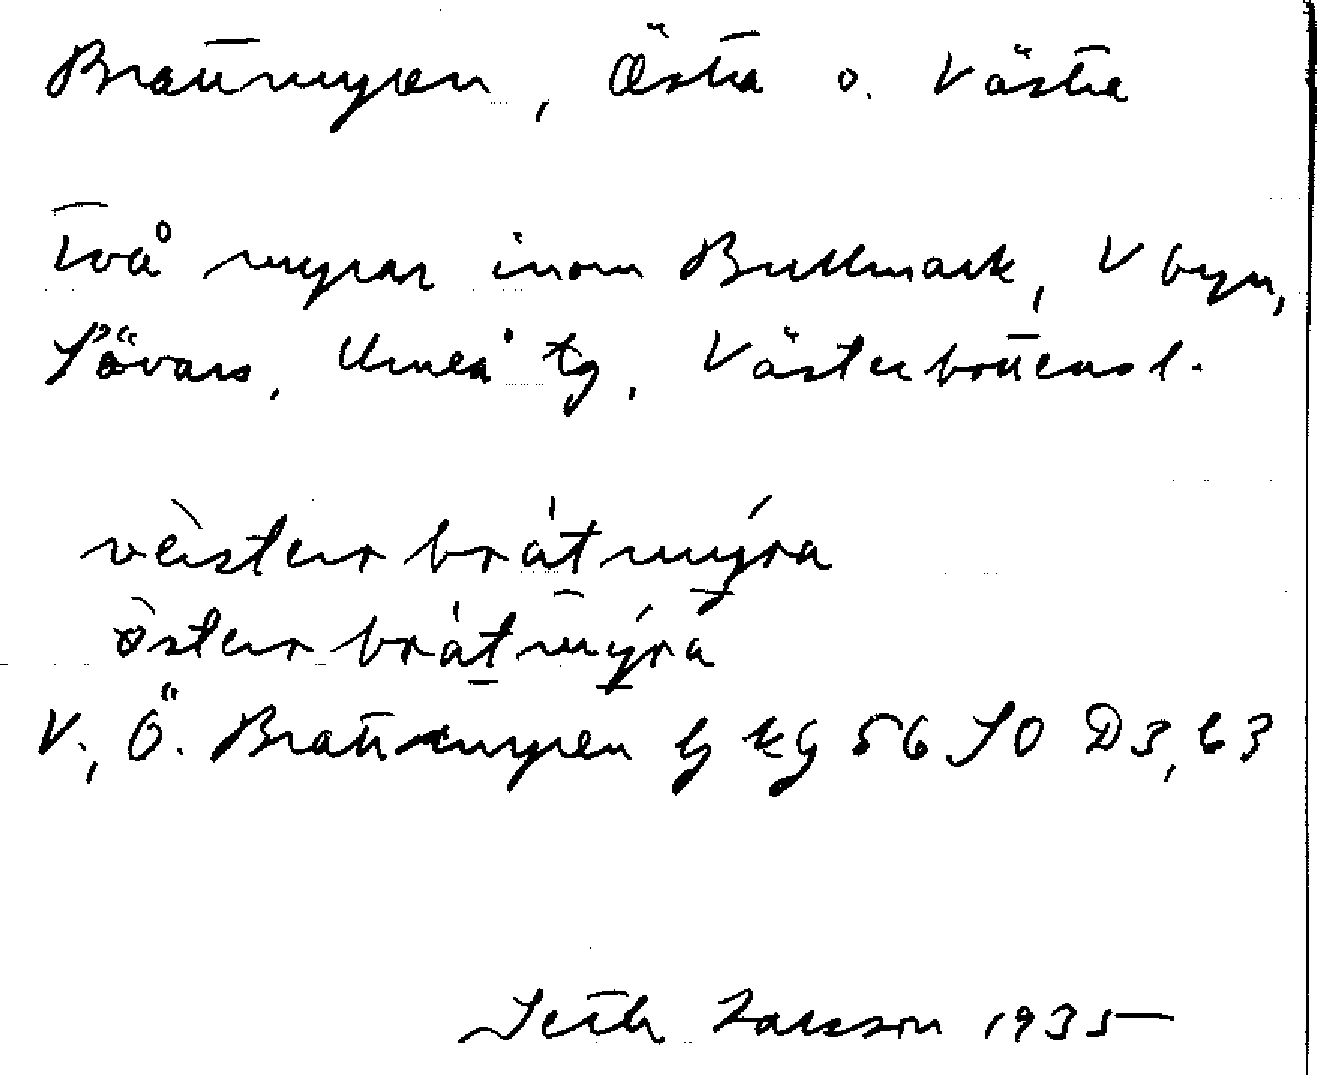 Brattmyren, Östra o. Västra
Två myrar inom Bullmark, V byn,
Sävars, Umeå tg, Västerbottens l.
vèsterr brát mýra
òsterr brát mýra
V., Ö. Brattmyren kg 56 SO D3, 63
Seth Larsson 1935